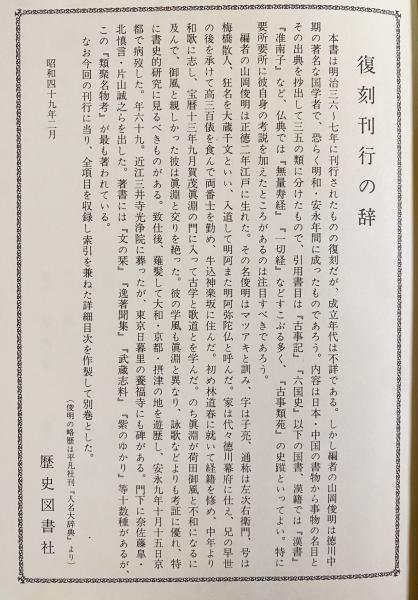 復刻刊行の辞
本書は明治三六〜七年に刊行されたものの復刻だが、成立年代は不詳である。しかし編者の山岡俊明は徳川中
期の著名な国学者で、恐らく明和・安永年間に成ったものであろう。内容は日本・中国の書物から事物の名目と
その出典を抄出して三五の類に分けたもので、引用書目は『古事記』『六国史』以下の国書、漢籍では『漢書』
『准南子』など、仏典では『無量寿経』『一切経』などすこぶる多く、『古事類苑』の史蹤といってよい。特に
要所要所に彼自身の考説を加えたところがあるのは注目すべきであろう。
編者の山岡俊明は正徳二年江戸に生れた。その名俊明はマツアキと訓み、字は子亮、通称は左次右衛門、号は
梅橋散人、狂名を大蔵千文といい、入道して明阿また明阿弥陀仏と呼んだ。家は代々徳川幕府に仕え、兄の早世
の後を承けて高三百俵を食んで両番士を勤め、牛込神楽坂に住んだ。初め林道春に就いて経籍を修め、中年より
和歌に志し、宝暦十三年九月賀茂眞淵の門に入って古学と歌道とを学んだ。のち眞淵が荷田御風と不和になるに
及んで、御風と親しかった彼は眞淵と交りを絶った。彼の学風も眞淵と異なり、詠歌などよりも考証に優れ、特
に書史的研究に見るべきものがある。致仕後、薙髪して大和・京都・摂津の地を遊歴し、安永九年十月十五日京
都で病歿した。年六十九。近江三井寺光浄院に葬ったが、東京日暮里の養福寺にも碑がある。門下に奈佐勝皐・
北慎言・片山誠之らを出した。著書には『文の栞』『逸著聞集』『武蔵志料』『紫のゆかり』等十数種があるが、
この『類聚名物考』が最も著われている。
なお今回の刊行に当り、全項目を収録し索引を兼ねた詳細目次を作製して別巻とした。
(俊明の略歴は平凡社刊『人名大辞典』より)
昭和四十九年二月
歴史図書社